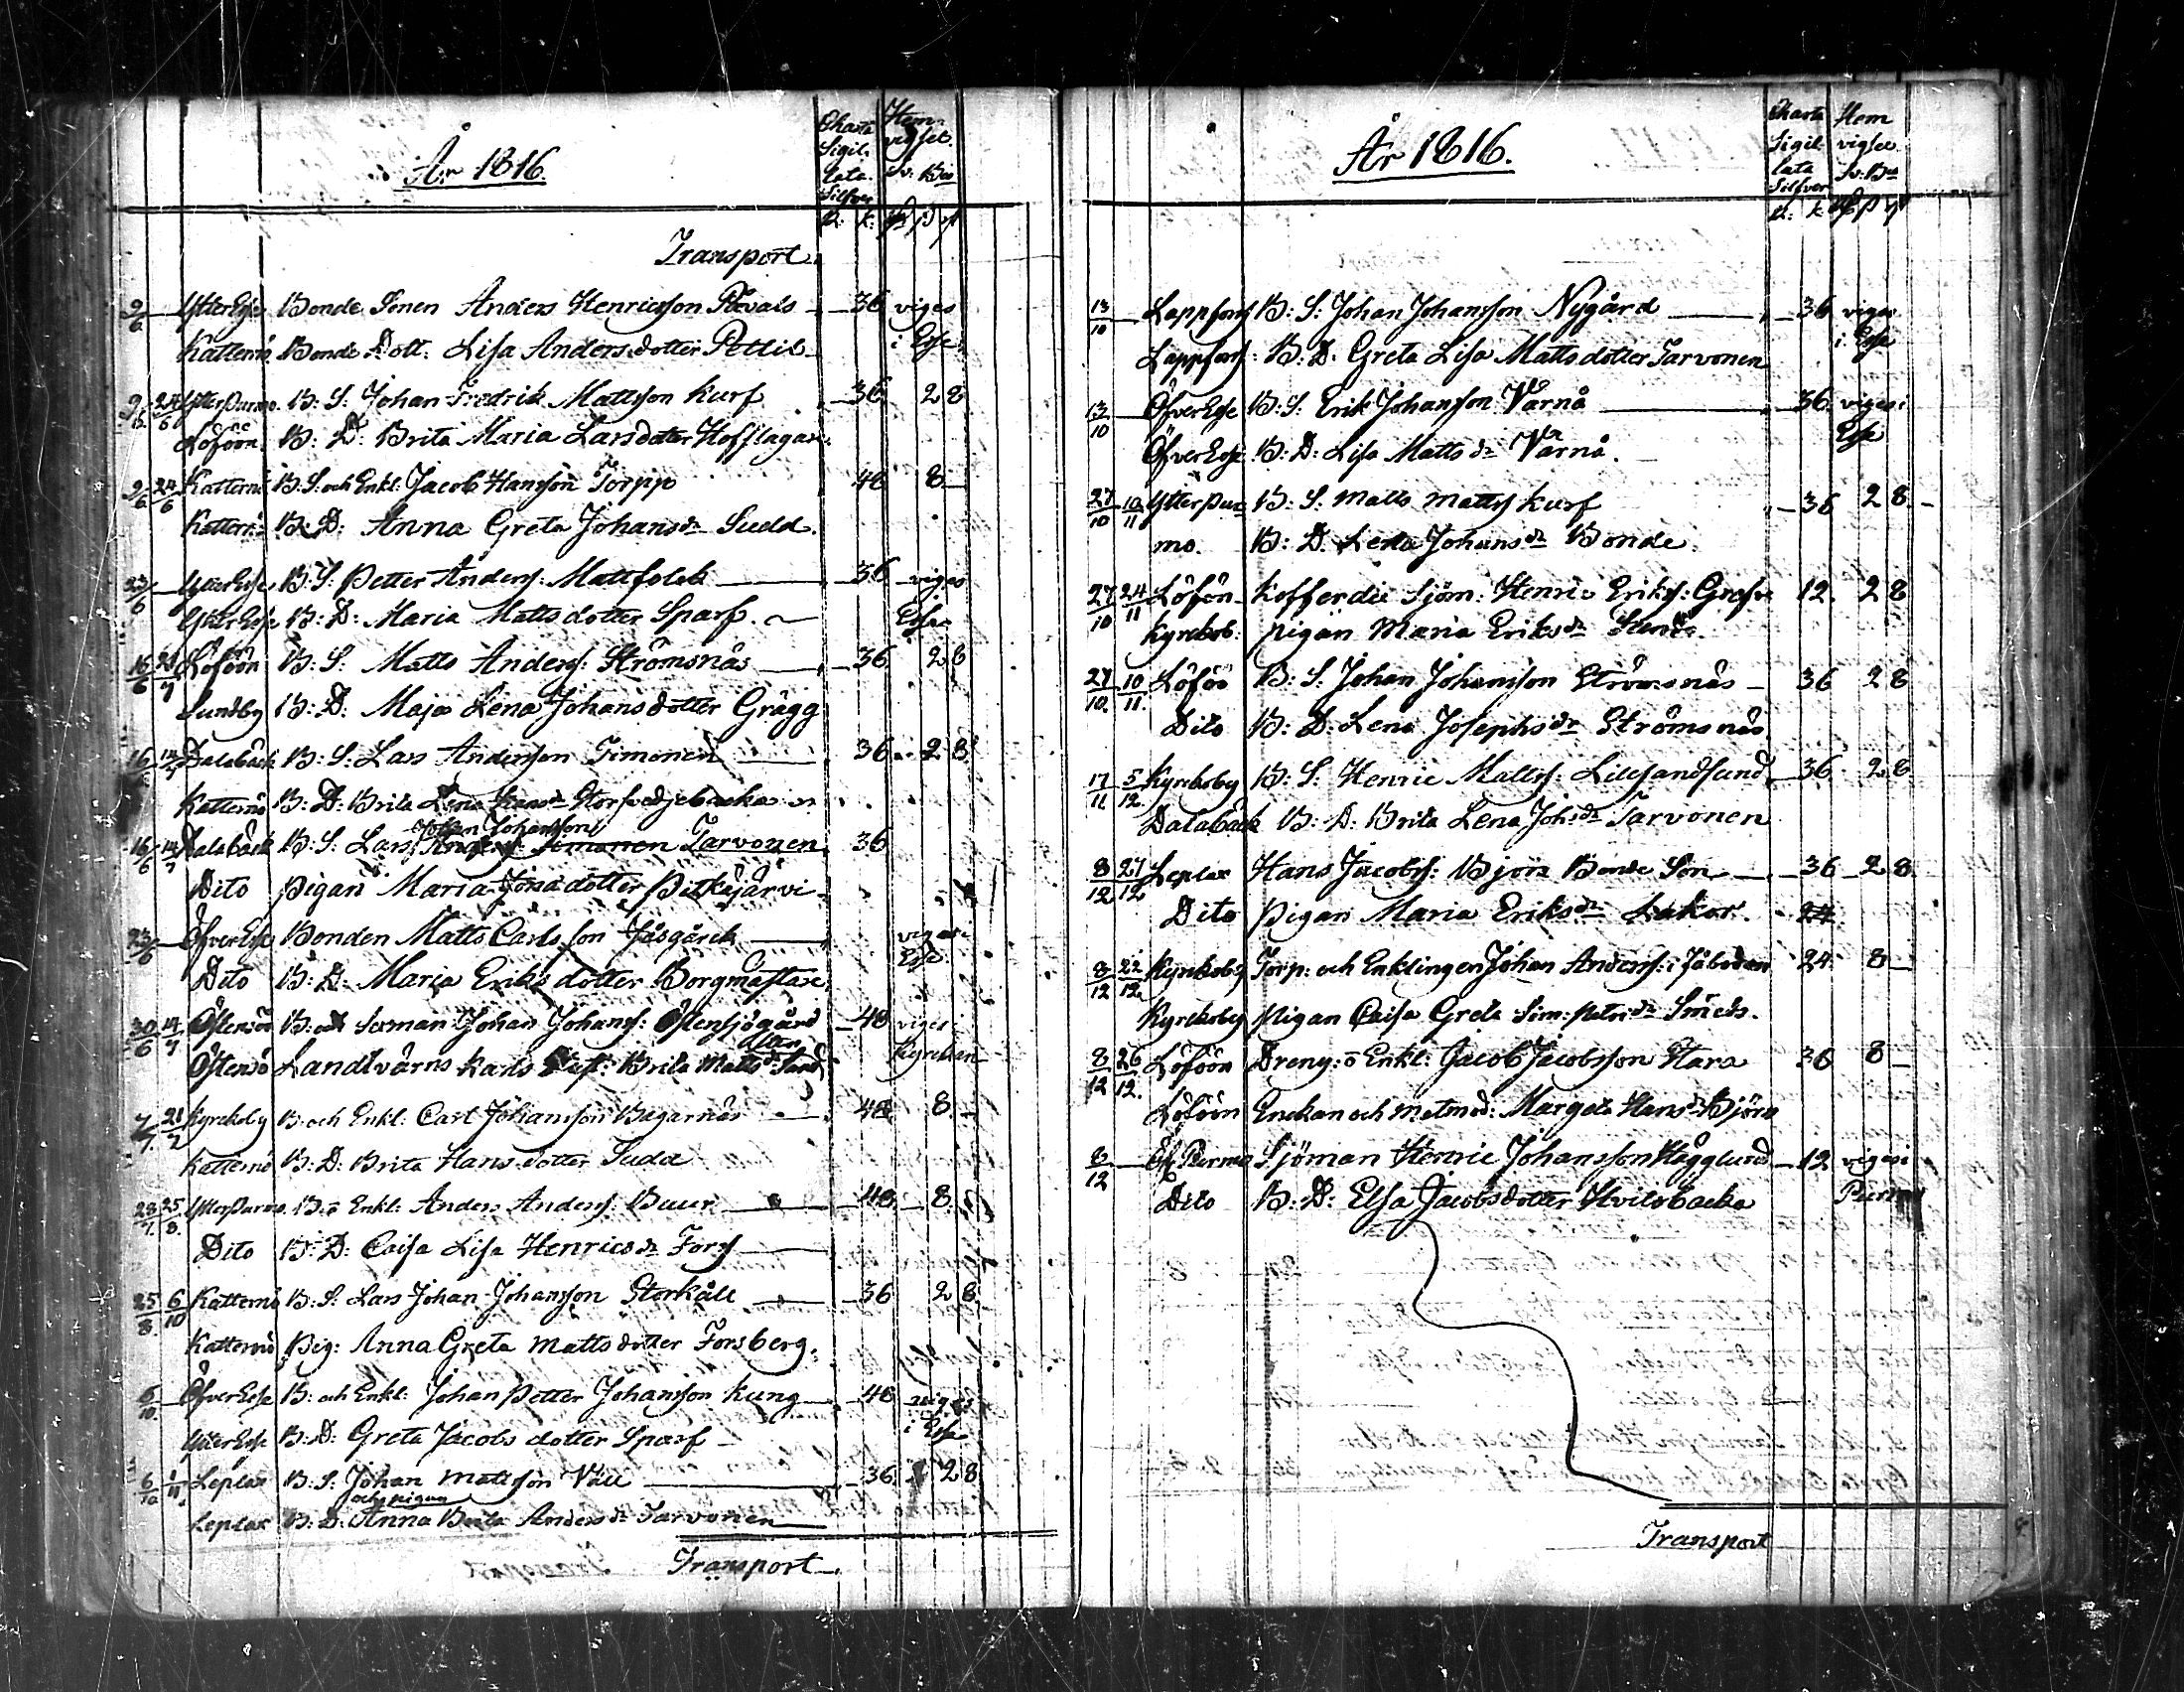 År 1816.
Charta Sigil- lata. Silfver
Hem- vigsel. Sv: B:co
R: k:
Transport
9/6 Ytter Esse Bonde Sonen Anders Henricsson 36 viges
Katternö Bonde Dott: Lisa Anders dotter i Esse
9/6 24/6 Ytter Purmo B: S: Johan Fredrik Mattsson Kurf 36 2 8
Löföön B: D: Brita Maria Larsdotter
9/6 24/6 Katternö B: S: och Enkl: Jacob Hansson Torpp 48 8 —
Katternö B: D: Anna Greta Johansdr Sudd
23/6 Ytter Esse B: S: Petter Anderss: Mattfolck 36 viges
Ytter Esse B: D: Maria Matts dotter Sparf Esse
16/6 Löföön B: S: Matts Anderss: Strömsnäs 36 2 8
Sundby B: D: Maja Lena Johans dotter Grägg
16/6 14/7 Dalabäck B: S: Lars Andersson Timonen 36 2 8
Katternö B: D: Brita Lena
Johan Johansson
16/6 14/7 Dalabäck B: S: Lars Anderss: Timonen Tarvonen 36
Dito Pigan Maria Jonsdotter Pitkäjärvi
23/6 Öfver Esse Bonden Matts Carlsson viges i
Dito B: D: Maria Eriks dotter Borgmästare Esse
30/6 14/7 Östensöö B: och Johan Johanss: Östensjögård 48 viges i
Östensö Landtvärns Karls Brita Matts dr Sand Kyrckan
7/7 21/7 Kyrckoby B: och Enkl: Carl Johansson Bagarnäs 48 8 —
Katternö B: D: Brita Hans dotter Sudd
28/7 25/8 Ytter Purmo B: o Enkl: Anders Anderss: Buur 48 8
Dito B: D: Caisa Lisa Henricsdr Forss
25/8 6/10 Katternö B: S: Lars Johan Johansson Storkåll 36 2 8
Katternö Pig: Anna Greta Matts dotter Forsberg
6/10 Öfver Esse B: och Enkl: Johan Petter Johansson Kung 48 viges
Ytter Esse B: D: Greta Jacobs dotter Sparf i Esse
6/10 1/11 Leplax B: S: Johan Mattsson 36 2 8
och pigan
Leplax B: D: Anna Brita Andersdr Tarvonen
Transport
År 1816.
Charta Sigil- lata Silfver
Hem vigsel Sv: B:co
R: k:
13/10 Lappfors B: S: Johan Johansson Nygård 36 viges
Lappfors B: D: Greta Lisa Matts dotter Tarvonen i Esse
13/10 Öfver Esse B: S: Erik Johansson Värnå 36 viges i
Öfver Esse B: D: Lisa Matts dr Värnå Esse
27/10 10/11 Ytterpur B: S: Matts Mattss Kurf 36 2 8 —
mo. B: D: Lena Johansdr Bonde
27/10 24/11 Löföön Kofferdie Sjöm: Henric Erikss: 12 2 8
Kyrckob: pigan Maria Eriksdr Sund
27/10 10/11 Löföö B: S: Johan Johansson Strömsnäs 36 2 8
Dito B: D: Lena Josephsdr Strömsnäs
17/11 5/12 Kyrckoby B: S: Henric Mattss: Lillsandsund 36 2 8
Dalabäck B: D: Brita Lena Joh:dr Tarvonen
8/12 27/12 Leplax Hans Jacobss: Björn Bonde Son 36 2 8
Dito Pigan Maria Eriksdr 24
8/12 22/12 Kyrckoby Torp: och Enklingen Johan Anderss: i Fäboda 24 8 —
Kyrckoby Pigan Caisa Greta Sim: Smeds.
8/12 26/12 Löföön Dreng: o Enkl: Jacob Jacobsson Stara 36 8 —
Löföön Enckan och Margeta Hansdr Björn
8/12 Öf: Purmo Sjöman Henric Johansson Hägglund 12 viges i
Dito B: D: Elsa Jacobsdotter Hvilobacka Purmo
Transport